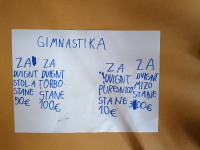 GIMNASTIKA
ZA
DVIGNT
STOLA
STANE
50€
ZA
DVIGNT
TORBO
STANE
100€
ZA
DVIGNT
PERESNICO
STANE
10€
ZA
DVIGNT
MIZO
STANE